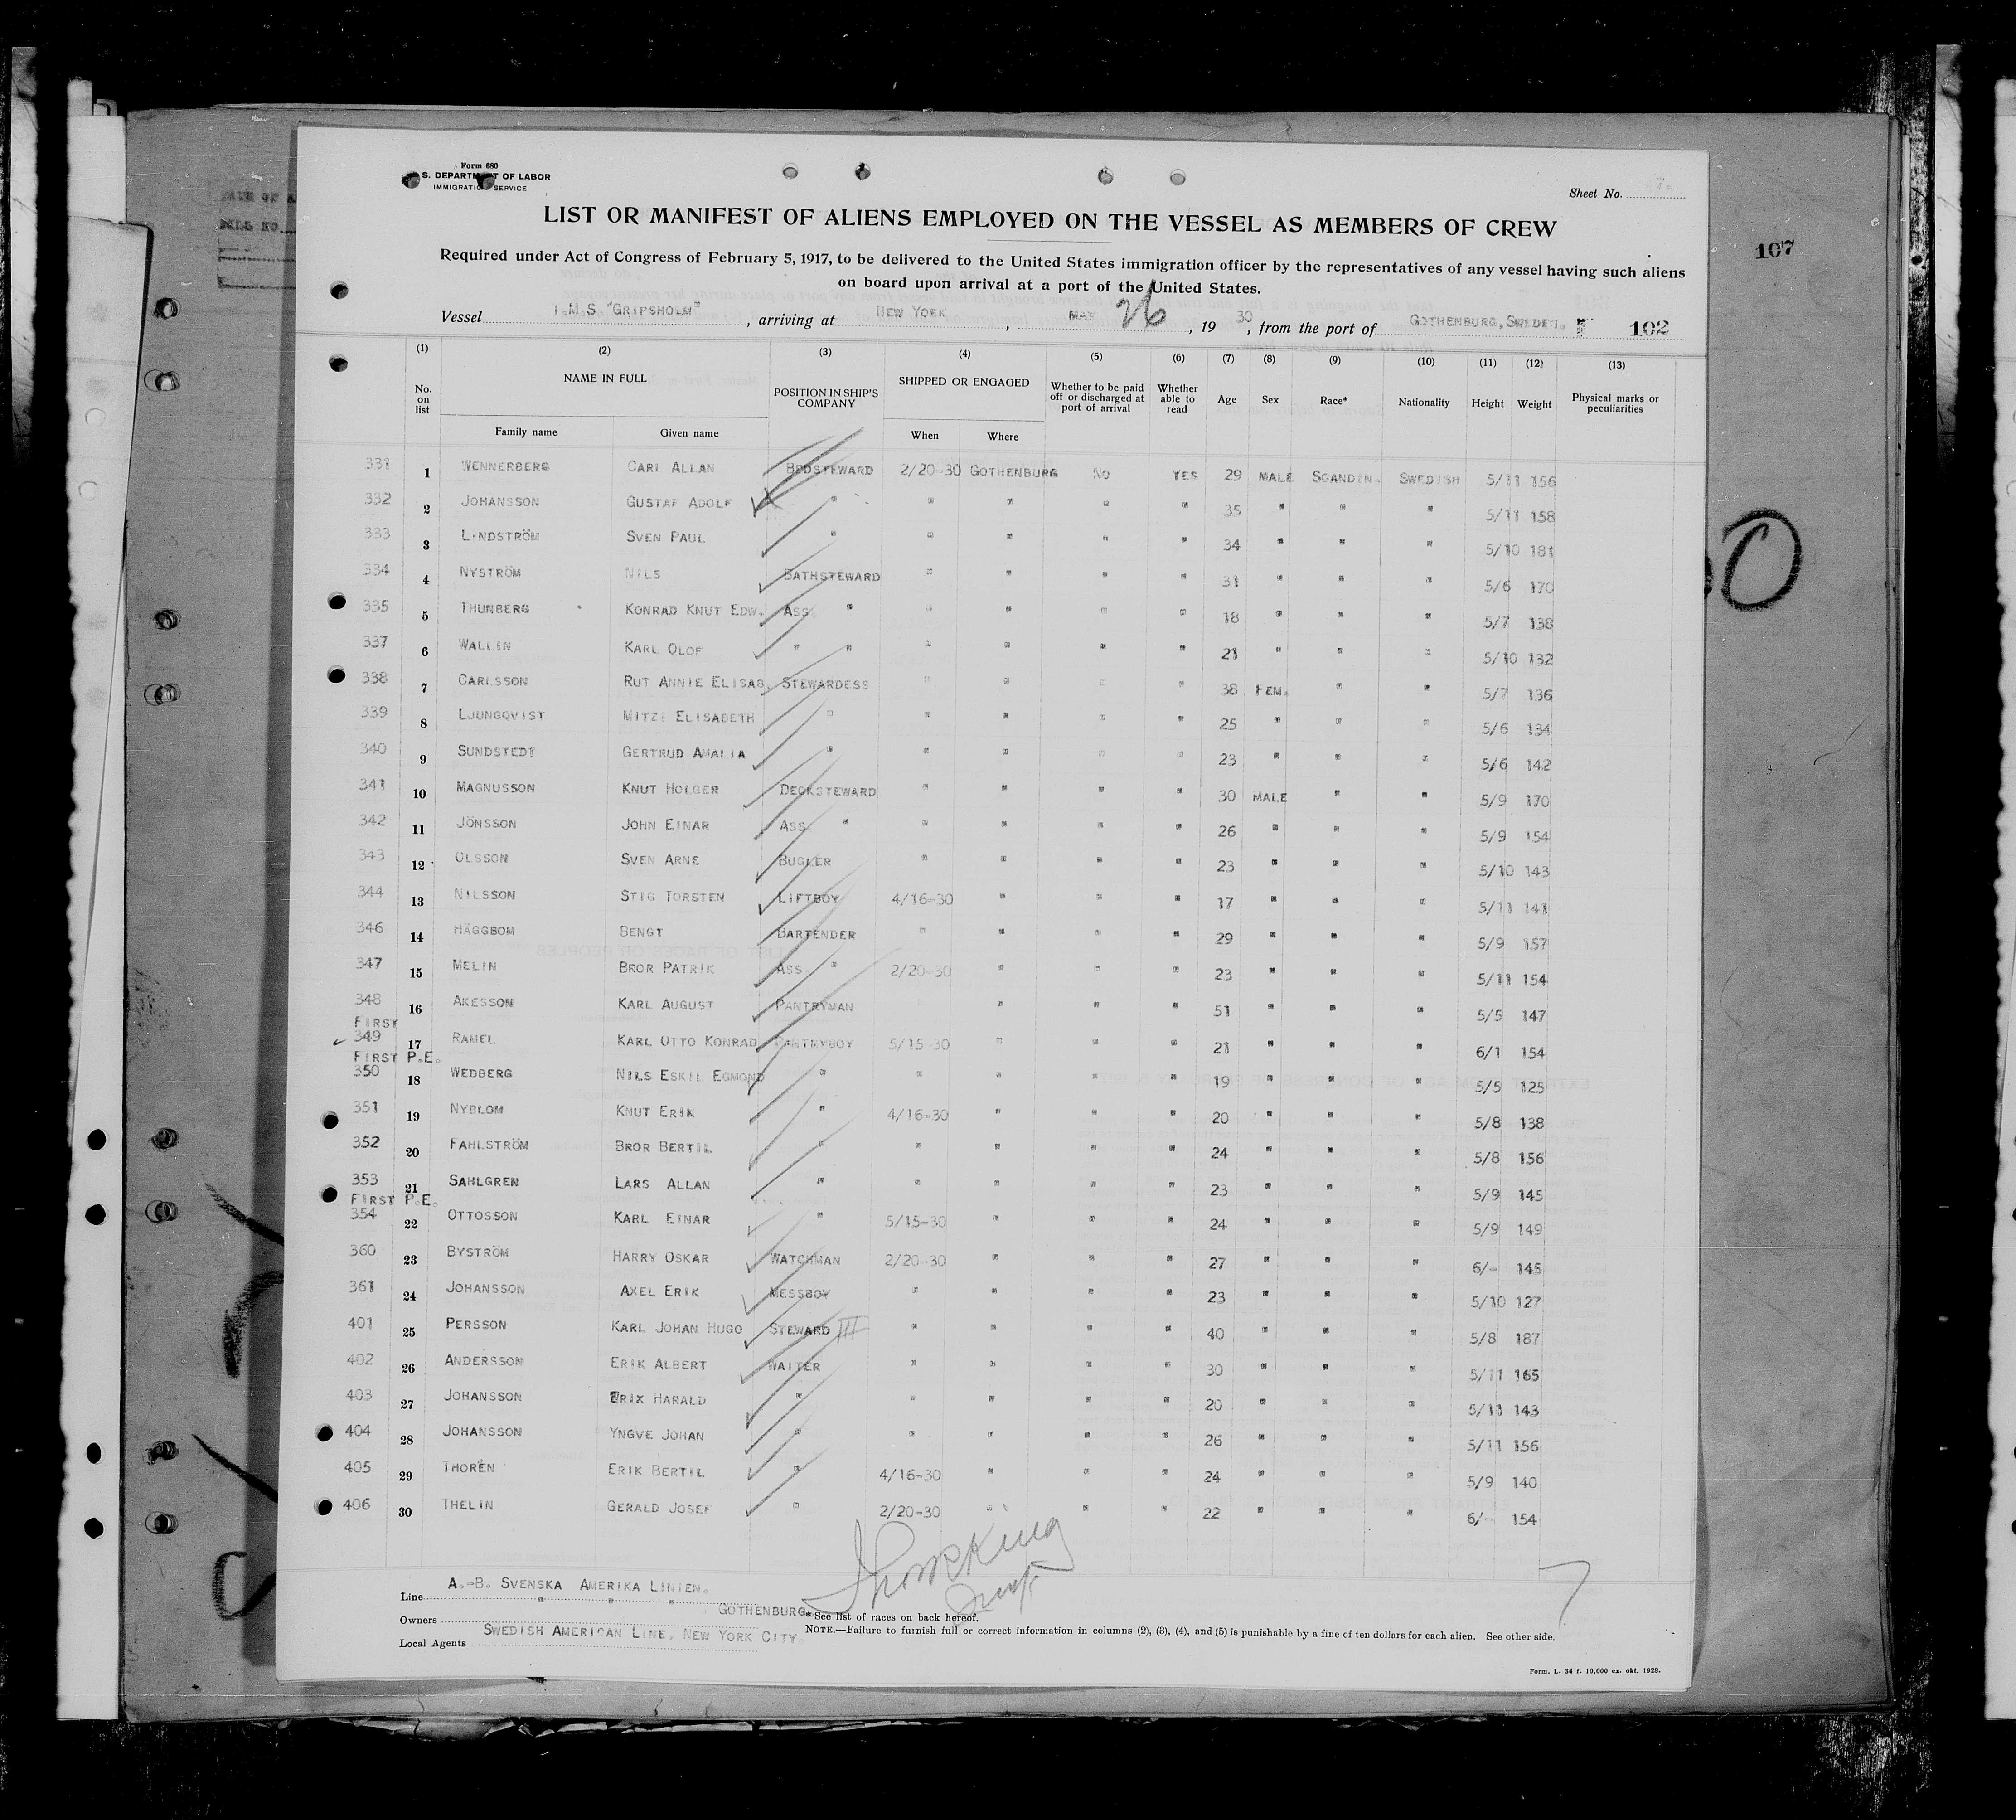 Form 680
S. DEPARTMENT OF LABOR
IMMIGRATION SERVICE
Sheet No. 7.
LIST OR MANIFEST OF ALIENS EMPLOYED ON THE VESSEL AS MEMBERS OF CREW
107
Required under Act of Congress of February 5, 1917, to be delivered to the United States immigration officer by the representatives of any vessel having such aliens
on board upon arrival at a port of the United States.
Vessel T.M.S. "GRIPSHOLM", arriving at NEW YORK, MAY 26, 1930, from the port of GOTHENBURG, SWEDEN. 102
(1) (2) (3) (4) (5) (6) (7) (8) (9) (10) (11) (12) (13)
No. on list NAME IN FULL POSITION IN SHIP'S COMPANY SHIPPED OR ENGAGED Whether to be paid off or discharged at port of arrival Whether able to read Age Sex Race* Nationality Height Weight Physical marks or peculiarities
Family name Given name When Where
331 1 WENNERBERG CARL ALLAN BEDSTEWARD 2/20-30 GOTHENBURG NO YES 29 MALE SCANDIN. SWEDISH 5/11 156
332 2 JOHANSSON GUSTAF ADOLF " " " " " 35 " " " 5/11 158
333 3 LINDSTRÖM SVEN PAUL " " " " " 34 " " " 5/10 181
334 4 NYSTRÖM NILS BATHSTEWARD " " " " 31 " " " 5/6 170
335 5 THUNBERG KONRAD KNUT EDW. ASS. " " " " " 18 " " " 5/7 138
337 6 WALLIN KARL OLOF " " " " " " 21 " " " 5/10 132
338 7 CARLSSON RUT ANNIE ELISAB. STEWARDESS " " " " 38 FEM. " " 5/7 136
339 8 LJUNGQVIST MITZI ELISABETH " " " " " 25 " " " 5/6 134
340 9 SUNDSTEDT GERTRUD AMALIA " " " " " 23 " " " 5/6 142
341 10 MAGNUSSON KNUT HOLGER DECKSTEWARD " " " " 30 MALE " " 5/9 170
342 11 JÖNSSON JOHN EINAR ASS. " " " " " 26 " " " 5/9 154
343 12 OLSSON SVEN ARNE BUGLER " " " " 23 " " " 5/10 143
344 13 NILSSON STIG TORSTEN LIFTBOY 4/16-30 " " " 17 " " " 5/11 141
346 14 HÄGGBOM BENGT BARTENDER " " " " 29 " " " 5/9 157
347 15 MELIN BROR PATRIK ASS. " 2/20-30 " " " 23 " " " 5/11 154
348 16 AKESSON KARL AUGUST PANTRYMAN " " " 51 " " " 5/5 147
FIRST
349 17 RAMEL KARL OTTO KONRAD PANTRYBOY 5/15-30 " " " 21 " " " 6/1 154
FIRST P.E.
350 18 WEDBERG NILS ESKIL EGMOND " " " " " 19 " " " 5/5 125
351 19 NYBLOM KNUT ERIK " 4/16-30 " " " 20 " " " 5/8 138
352 20 FAHLSTRÖM BROR BERTIL " " " " " 24 " " " 5/8 156
353 21 SAHLGREN LARS ALLAN " " " " " 23 " " " 5/9 145
FIRST P.E.
354 22 OTTOSSON KARL EINAR " 5/15-30 " " " 24 " " " 5/9 149
360 23 BYSTRÖM HARRY OSKAR WATCHMAN 2/20-30 " " " 27 " " " 6/- 145
361 24 JOHANSSON AXEL ERIK MESSBOY " " " " 23 " " " 5/10 127
401 25 PERSSON KARL JOHAN HUGO STEWARD III " " " " 40 " " " 5/8 187
402 26 ANDERSSON ERIK ALBERT WAITER " " " " 30 " " " 5/11 165
403 27 JOHANSSON ERIK HARALD " " " " " 20 " " " 5/11 143
404 28 JOHANSSON YNGVE JOHAN " " " " " 26 " " " 5/11 156
405 29 THORÉN ERIK BERTIL " 4/16-30 " " " 24 " " " 5/9 140
406 30 THELIN GERALD JOSEF " 2/20-30 " " " 22 " " " 6/- 154
7
Line A.-B. SVENSKA AMERIKA LINIEN.
Owners " " " GOTHENBURG.
Local Agents SWEDISH AMERICAN LINE, NEW YORK CITY.
*See list of races on back hereof.
NOTE.—Failure to furnish full or correct information in columns (2), (3), (4), and (5) is punishable by a fine of ten dollars for each alien. See other side.
Form. L. 34 f. 10,000 ex. okt. 1928.